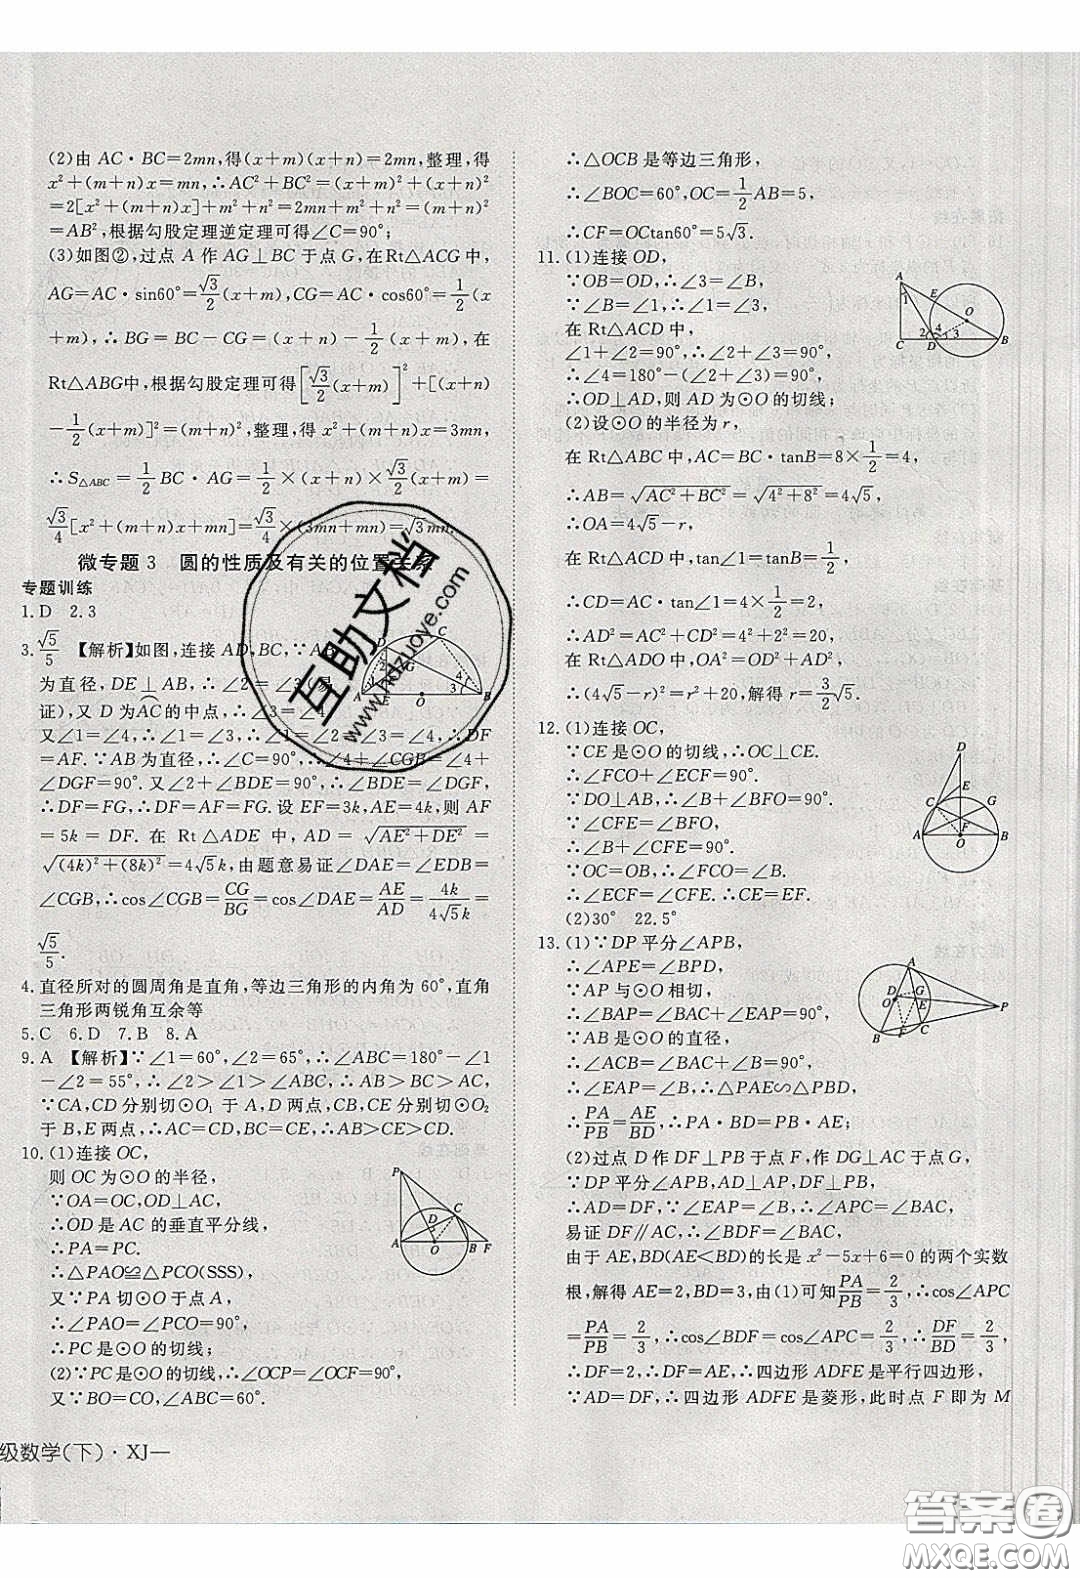 (2)由 AC·BC=2mn,得(x+m)(x+n)=2mn,整理,得
x²+(m+n)x=mn,∴AC²+BC²=(x+m)²+(x+n)²
=2[x²+(m+n)x]+m²+n²=2mn+m²+n²=(m+n)²
=AB²,根据勾股定理逆定理可得∠C=90°;
(3)如图②,过点 A 作 AG⊥BC 于点 G,在Rt△ACG 中,
AG=AC·sin60°=√3/2(x+m),CG=AC·cos60°=1/2(x
+m),∴BG=BC-CG=(x+n)-1/2(x+m),在
Rt△ABG中,根据勾股定理可得[√3/2(x+m)]²+[(x+n)
-1/2(x+m)]²=(m+n)²,整理,得 x²+(m+n)x=3mn,
∴S△ABC=1/2BC·AG=1/2×(x+n)×√3/2(x+m)=
√3/4[x²+(m+n)x+mn]=√3/4×(3mn+mn)=√3mn.
微专题 3 圆的性质及有关的位置关系
专题训练
1. D 2. 3
3. √5/5 【解析】如图,连接 AD,BC,∵AB
为直径,DE⊥AB,∴∠2=∠3(易
证),又 D 为AC的中点,∴∠3=∠4,
又∠1=∠4,∴∠1=∠2=∠3=∠4,∴DF
=AF.∵AB 为直径,∴∠C=90°,∴∠4+∠CGB=∠4+
∠DGF=90°.又∠2+∠BDE=90°,∴∠BDE=∠DGF,
∴DF=FG,∴DF=AF=FG.设 EF=3k,AE=4k,则 AF
=5k=DF.在 Rt△ADE 中,AD=√(AE²+DE²)=
√((4k)²+(8k)²)=4√5k,由题意易证∠DAE=∠EDB=
∠CGB,∴cos∠CGB=CG/BG=cos∠DAE=AE/AD=4k/4√5k=
√5/5.
4. 直径所对的圆周角是直角,等边三角形的内角为 60°,直角
三角形两锐角互余等
5. C 6. D 7. B 8. A
9. A 【解析】∵∠1=60°,∠2=65°,∴∠ABC=180°-∠1
-∠2=55°,∴∠2>∠1>∠ABC,∴AB>BC>AC,
∵CA,CD 分别切⊙O₁ 于 A,D两点,CB,CE 分别切⊙O₂
于 B,E 两点,∴AC=CD,BC=CE,∴AB>CE>CD.
10. (1)连接 OC,
则 OC 为⊙O 的半径,
∵OA=OC,OD⊥AC,
∴OD 是 AC 的垂直平分线,
∴PA=PC.
∴△PAO≌△PCO(SSS),
又∵PA 切⊙O 于点 A,
∴∠PAO=∠PCO=90°,
∴PC 是⊙O 的切线;
(2)∵PC 是⊙O的切线,∴∠OCP=∠OCF=90°.
又∵BO=CO,∠ABC=60°.
级数学(下)·XJ—
∴△OCB 是等边三角形,
∴∠BOC=60°,OC=1/2AB=5,
∴CF=OCtan60°=5√3.
11. (1)连接 OD,
∵OB=OD,∴∠3=∠B,
∵∠B=∠1,∴∠1=∠3,
在 Rt△ACD 中,
∠1+∠2=90°,∴∠2+∠3=90°,
∴∠4=180°-(∠2+∠3)=90°,
∴OD⊥AD,则 AD 为⊙O 的切线;
(2)设⊙O 的半径为 r,
在 Rt△ABC 中,AC=BC·tanB=8×1/2=4,
∴AB=√(AC²+BC²)=√(4²+8²)=4√5,
∴OA=4√5-r,
在 Rt△ACD 中,tan∠1=tanB=1/2,
∴CD=AC·tan∠1=4×1/2=2,
∴AD²=AC²+CD²=4²+2²=20,
在 Rt△ADO 中,OA²=OD²+AD²,
∴(4√5-r)²=r²+20,解得 r=3/2√5.
12. (1)连接 OC,
∵CE 是⊙O 的切线,∴OC⊥CE.
∴∠FCO+∠ECF=90°.
∵DO⊥AB,∴∠B+∠BFO=90°.
∵∠CFE=∠BFO,
∴∠B+∠CFE=90°.
∵OC=OB,∴∠FCO=∠B.
∴∠ECF=∠CFE.∴CE=EF.
(2)30° 22.5°
13. (1)∵DP 平分∠APB,
∴∠APE=∠BPD,
∵AP 与⊙O 相切,
∴∠BAP=∠BAC+∠EAP=90°,
∵AB 是⊙O 的直径,
∴∠ACB=∠BAC+∠B=90°,
∴∠EAP=∠B,∴△PAE∽△PBD,
∴PA/PB=AE/BD,∴PA·BD=PB·AE;
(2)过点 D 作 DF⊥PB 于点 F,作 DG⊥AC 于点 G,
∵DP 平分∠APB,AD⊥AP,DF⊥PB,
∴AD=DF,∵∠EAP=∠B,∴∠APC=∠BAC,
易证 DF∥AC,∴∠BDF=∠BAC,
由于 AE,BD(AE<BD)的长是 x²-5x+6=0 的两个实数
根,解得 AE=2,BD=3,由(1)可知PA/PB=2/3,∴cos∠APC
=PA/PB=2/3,∴cos∠BDF=cos∠APC=2/3,∴DF/BD=2/3,
∴DF=2,∴DF=AE,∴四边形 ADFE 是平行四边形,
∵AD=DF,∴四边形 ADFE 是菱形,此时点 F 即为 M
互助文档
www.hdzuoye.com
答案卷
MXQE.COM